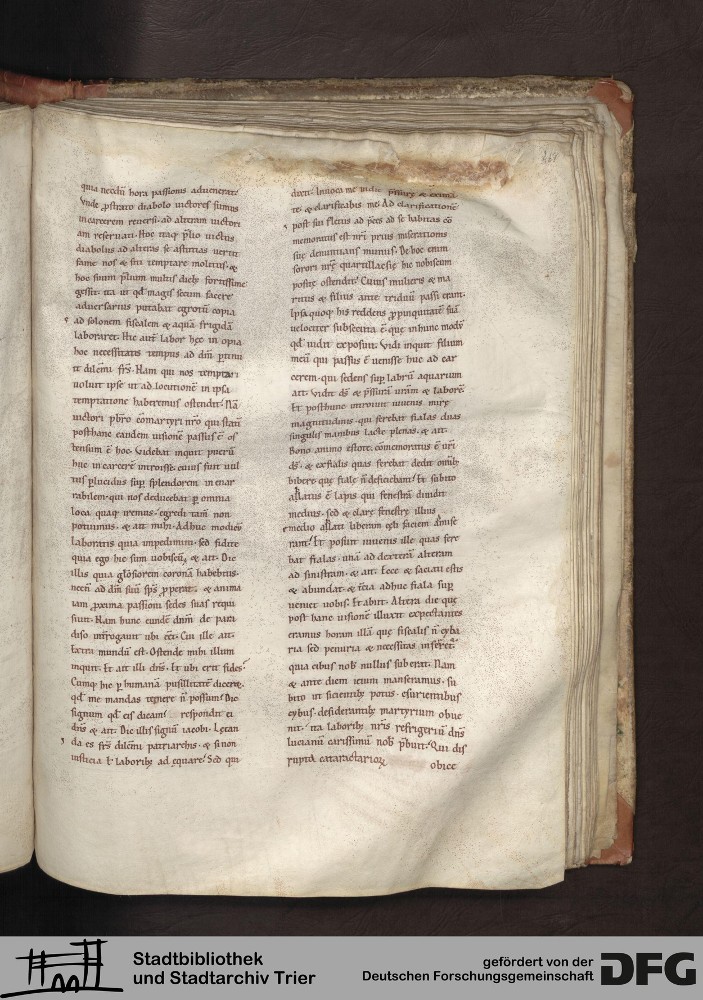 quia necdū hora passionis advenerat.
Vnde ꝓstrato diabolo uictores sumus
in carcerem reuersi. ad alteram uictori
am reseruati. Hoc itaq; p̄lio uictus
diabolus ad alteras se astutias uertit
fame nos & siti temptare molitus. &
hoc suum p̄lium multis dieb; fortissime
gessit. ita ut qd̄ magis secum facere
aduersarius putabat egrotū copia
ad solonem fiscalem & aquā frigidā
laboraret. Hic aut̄ labor hęc in opia
hoc necessitatis tempus ad dm̄ ꝑtinu
it dilcīmi frs̄. Nam qui nos temptari
uoluit ipse ut ad locutionē in ipsa
temptatione haberemus ostendit. Nā
uictori pbr̄o cōmartyri nr̄o qui statī
post hanc eandem uisionē passus ē os
tensum ē hoc. Videbat inquit puerū
huc in carcerē introisse. cuius fuit uul
tus ꝑlucidus sup̄ splendorem inenar
rabilem. qui nos deducebat ꝑ omnia
loca quaq; iremus. egredi tam̄ non
potuimus. & ait mihi. Adhuc modicū
laboratis quia impedimini. sed fidite
quia ego hic sum uobiscū. & ait. Dic
illis quia glōsiorem coronā habebitis.
necn̄ ad dm̄ suū sp̄s ꝓperat. & anima
iam ꝓxima passioni sedes suas requi
siuit. Nam hunc eundē dnm̄ de para
diso int̄rogauit ubi eēt. Cui ille ait.
Extra mundū est. Ostende mihi illum
inquit. Et ait illi dn̄s. Et ubi erit fides?
Cumq; hic ꝑ humanā pusillitatē diceret.
qd̄ me mandas tenere n̄ possum. Dic
signum qd̄ eis dicam. respondit ei
dn̄s & ait. Dic illis signū iacobi. Letan
da es frs̄ dilcīmi patriarchis. & si non
iusticia ł laborib; ad equare. Sed qui
dixit. Inuoca me in die p̄ssurę & exima
te. & clarificabis me. Ad clarificationē
post sui fletus ad p̄ces ad se habitas cō
memoratus est nr̄i prius miserationis
suę denuntians munus. De hoc enim
sorori nr̄ę quartillaesię hic nobiscum
positę ostendit. Cuius mulieris & ma
ritus & filius ante triduū passi erant.
Ipsa quoq; his reddens ꝓpinquitatē suā
uelociter subsecuta ē. quę in hunc modū
qd̄ uidit exposuit. Vidi inquit filium
meū qui passus ē uenisse huc ad car
cerem. qui sedens sup̄ labrū aquarium
ait. Vidit ds̄ & p̄ssurā urām & laborē.
Et post hunc introiuit iuuenis mirę
magnitudinis. qui ferebat fialas duas
singulis manibus lacte plenas. & ait.
Bono animo estote. cōmemoratus ē ur̄i
ds̄. & ex fialis quas ferebat dedit omīb;
bibere quę fialę n̄ deficiebant. Et subito
ablatus ē lapis qui fenestrā diuidit
medius. sed & clarę fenestrę illius
e medio ablati liberam cęli faciem admise
rant. Et posuit iuuenis ille quas fere
bat fialas. unā ad dexterā alteram
ad sinistram. & ait. Ecce & saciati estis
& abundat. & tc̄ia adhuc fiala sup̄
ueniet uobis. Et abiit. Altera die quę
post hanc uisionē illuxit expectantes
eramus horam illā quę fiscalis n̄ ciba
ria sed penuria & necessitas inferret
quia cibus nob̄ nullus suberat. Nam
& ante diem ieiuni manseramus. su
bito ut sicientib; potus. esurientibus
cybus. desiderantib; martyrium obue
nit. ita laborib; nr̄is refrigeriū dn̄s
lucianū carissimū nob̄ p̄buit. Qui dis
rupta cataractarioꝝ
obice
Stadtbibliothek
und Stadtarchiv Trier
gefördert von der
Deutschen Forschungsgemeinschaft
DFG